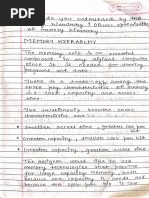 do you understand by the
memory hierarchy? Discuss
of memory hierarchy.
MEMORY HIERARCHY
The memory unit is an essential
component in any digital computer
since it is needed for storing
programs and data.
There is a trade-off among the
three key characteristics of memory
i.e. cost, capacity and access
time.
The relationship between these
characteristics are:
access time, greater cost per bit
Greater capacity, smaller cost per bit
Greater capacity, greater access time.
The designer would like to use
memory technologies that provide
for large capacity memory both
because the capacity is needed and
because the cost per bit is low.